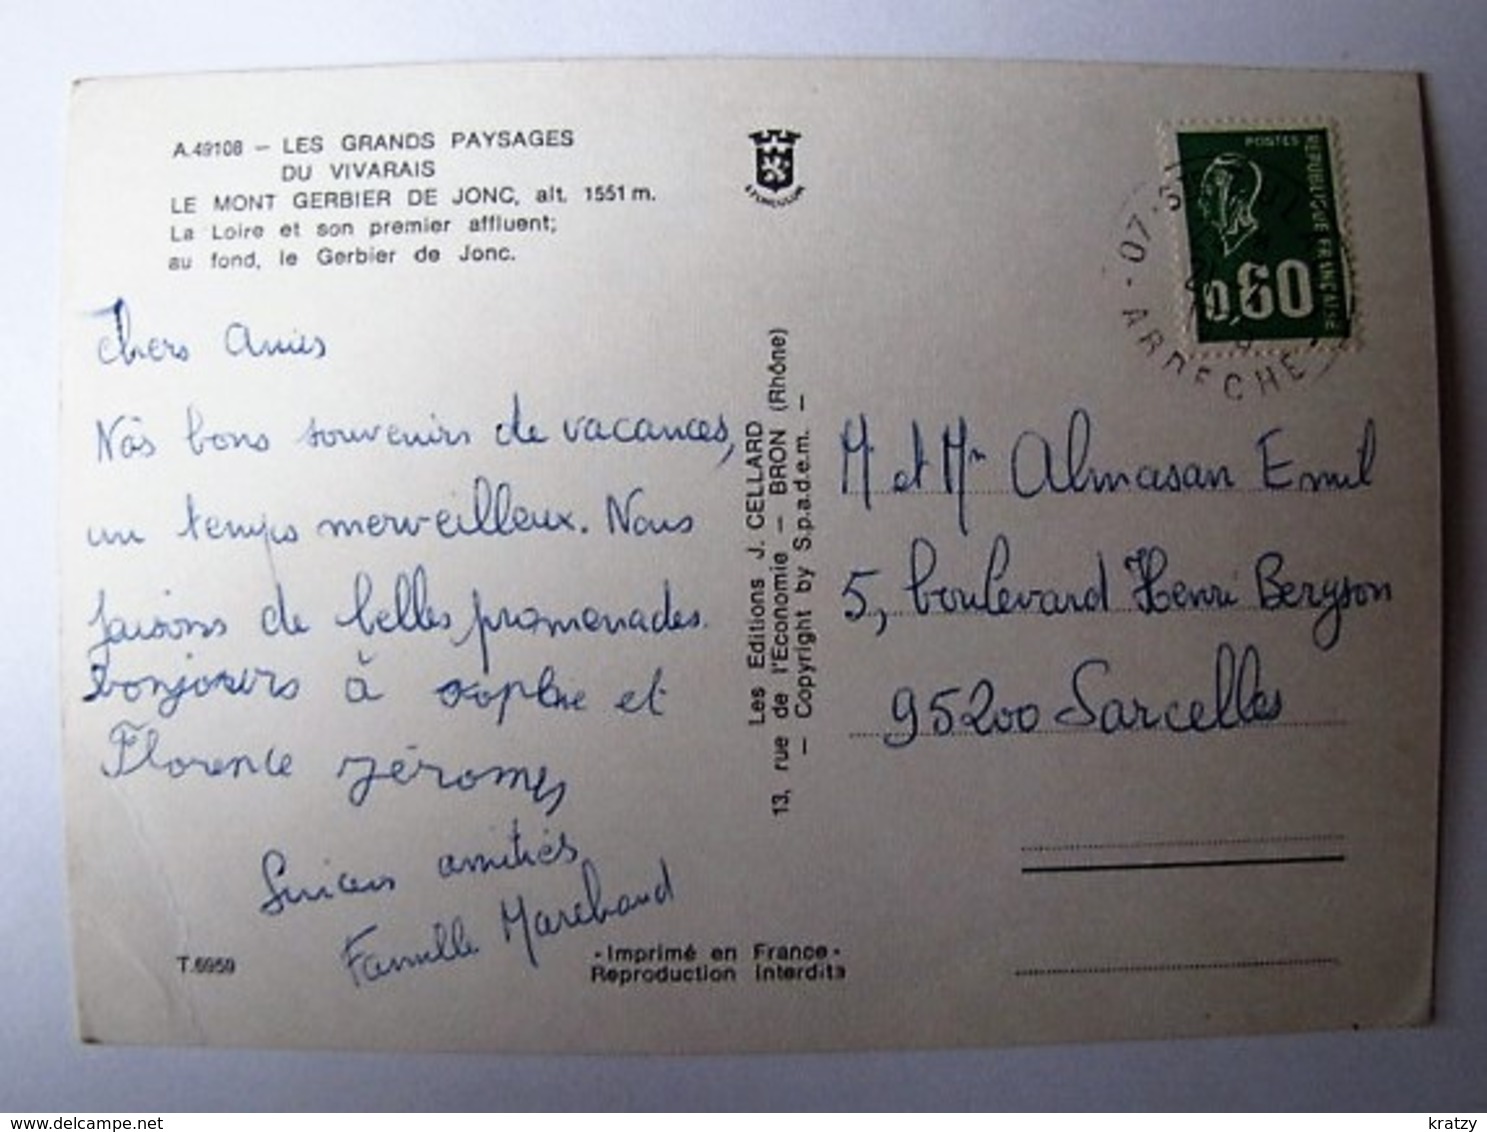 A.49108 – LES GRANDS PAYSAGES
DU VIVARAIS
LE MONT GERBIER DE JONC, alt. 1551 m.
La Loire et son premier affluent;
au fond, le Gerbier de Jonc.
Chers Amis
Nos bons souvenirs de vacances,
un temps merveilleux. Nous
faisons de belles promenades.
bonjours à sophie et
Florence Jérome
amitiés
Famille Marchand
T.6959
- Imprimé en France -
Reproduction Interdite
Les Editions J. CELLARD
13, rue de l'Economie – BRON (Rhône)
– Copyright by S.p.a.d.e.m. –
POSTES
REPUBLIQUE FRANÇAISE
0,60
07
ARDECHE
M. et Mm Almasan Emil
5, boulevard Henri Bergson
95200 Sarcelles
kratzy